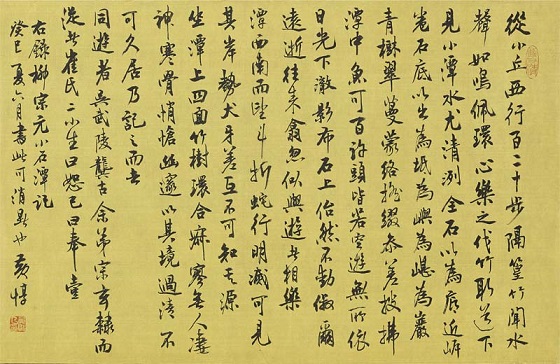 從小丘西行百二十步隔篁竹聞水
聲如鳴佩環心樂之伐竹取道下
見小潭水尤清洌全石以為底近岸
卷石底以出為坻為嶼為嵁為巖
青樹翠蔓蒙絡搖綴參差披拂
潭中魚可百許頭皆若空遊無所依
日光下澈影布石上佁然不動俶爾
遠逝往來翕忽似與遊者相樂
潭西南而望斗折蛇行明滅可見
其岸勢犬牙差互不可知其源
坐潭上四面竹樹環合寂寥無人淒
神寒骨悄愴幽邃以其境過清不
可久居乃記之而去
同遊者吳武陵龔古余弟宗玄隸而
從者崔氏二小生曰恕己曰奉壹
右錄柳宗元小石潭記
癸巳夏六月書此可消暑也 黃惇